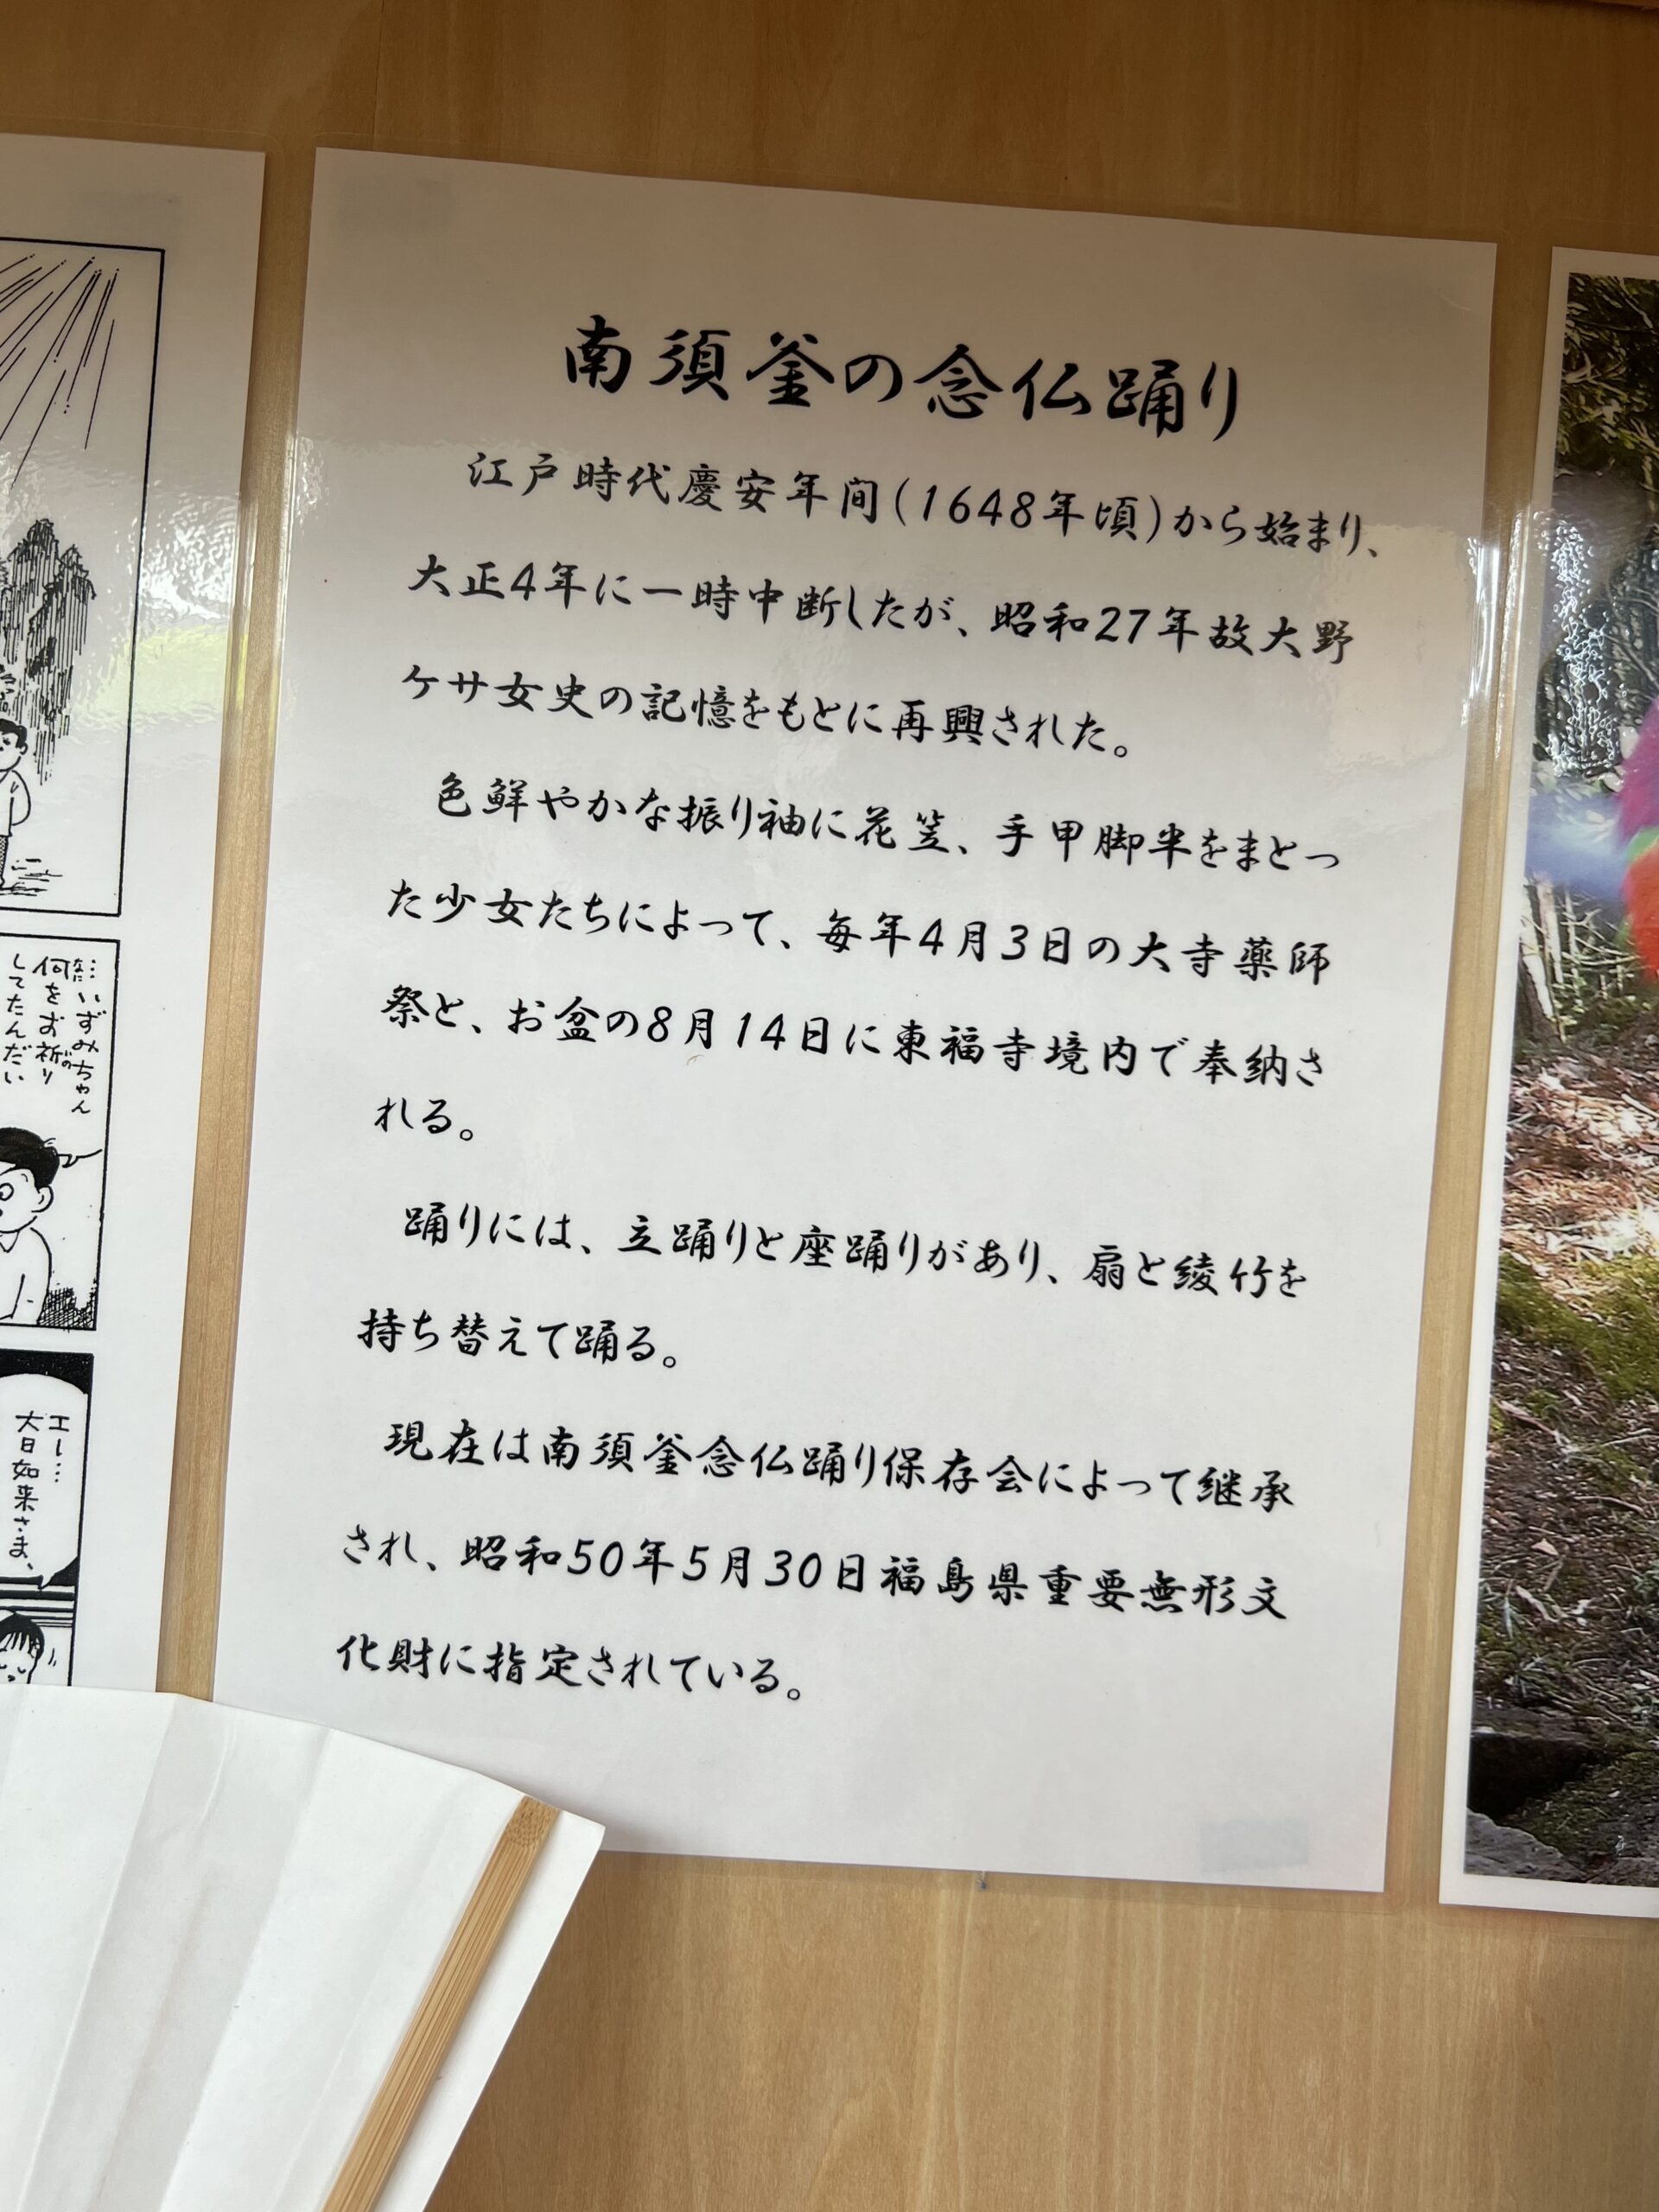 南須釜の念仏踊り
江戸時代慶安年間(1648年頃)から始まり、
大正4年に一時中断したが、昭和27年故大野
ケサ女史の記憶をもとに再興された。
色鮮やかな振り袖に花笠、手甲脚半をまとっ
た少女たちによって、毎年4月3日の大寺薬師
祭と、お盆の8月14日に東福寺境内で奉納さ
れる。
踊りには、立踊りと座踊りがあり、扇と綾竹を
持ち替えて踊る。
現在は南須釜念仏踊り保存会によって継承
され、昭和50年5月30日福島県重要無形文
化財に指定されている。
いずみちゃん
何をお祈り
してたんだい
エーー…
大日如来さま、